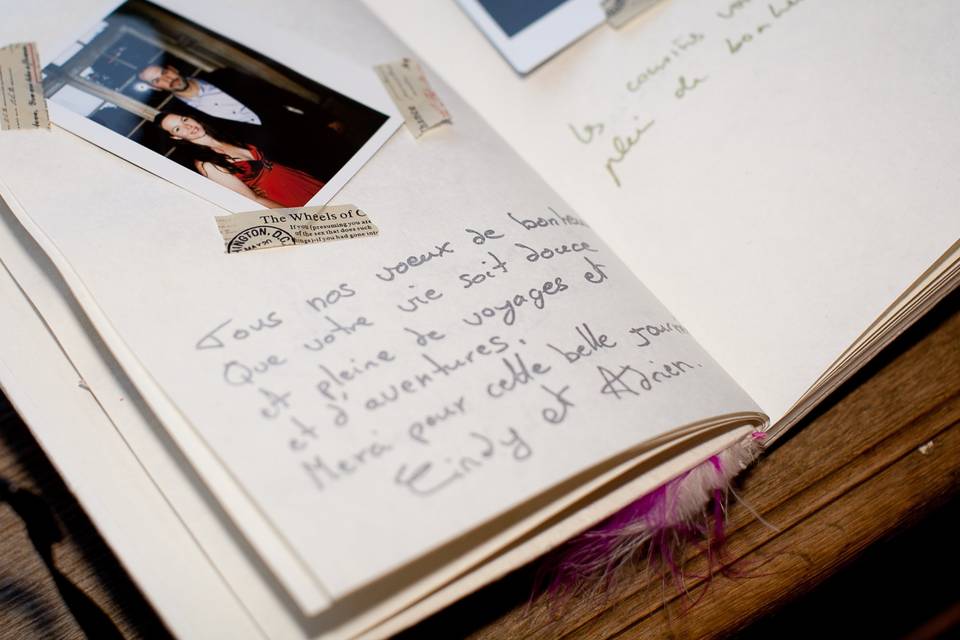 The Wheels of C
If you (presuming you are
of the sex that does such
if you had gone
NGTON, D.C.
Tous nos voeux de bonheu
Que votre vie soit douce
et pleine de voyages et
et d'aventures.
Merci pour cette belle journ
Cindy et Adrien.
cousins
de bonhe
les
plein